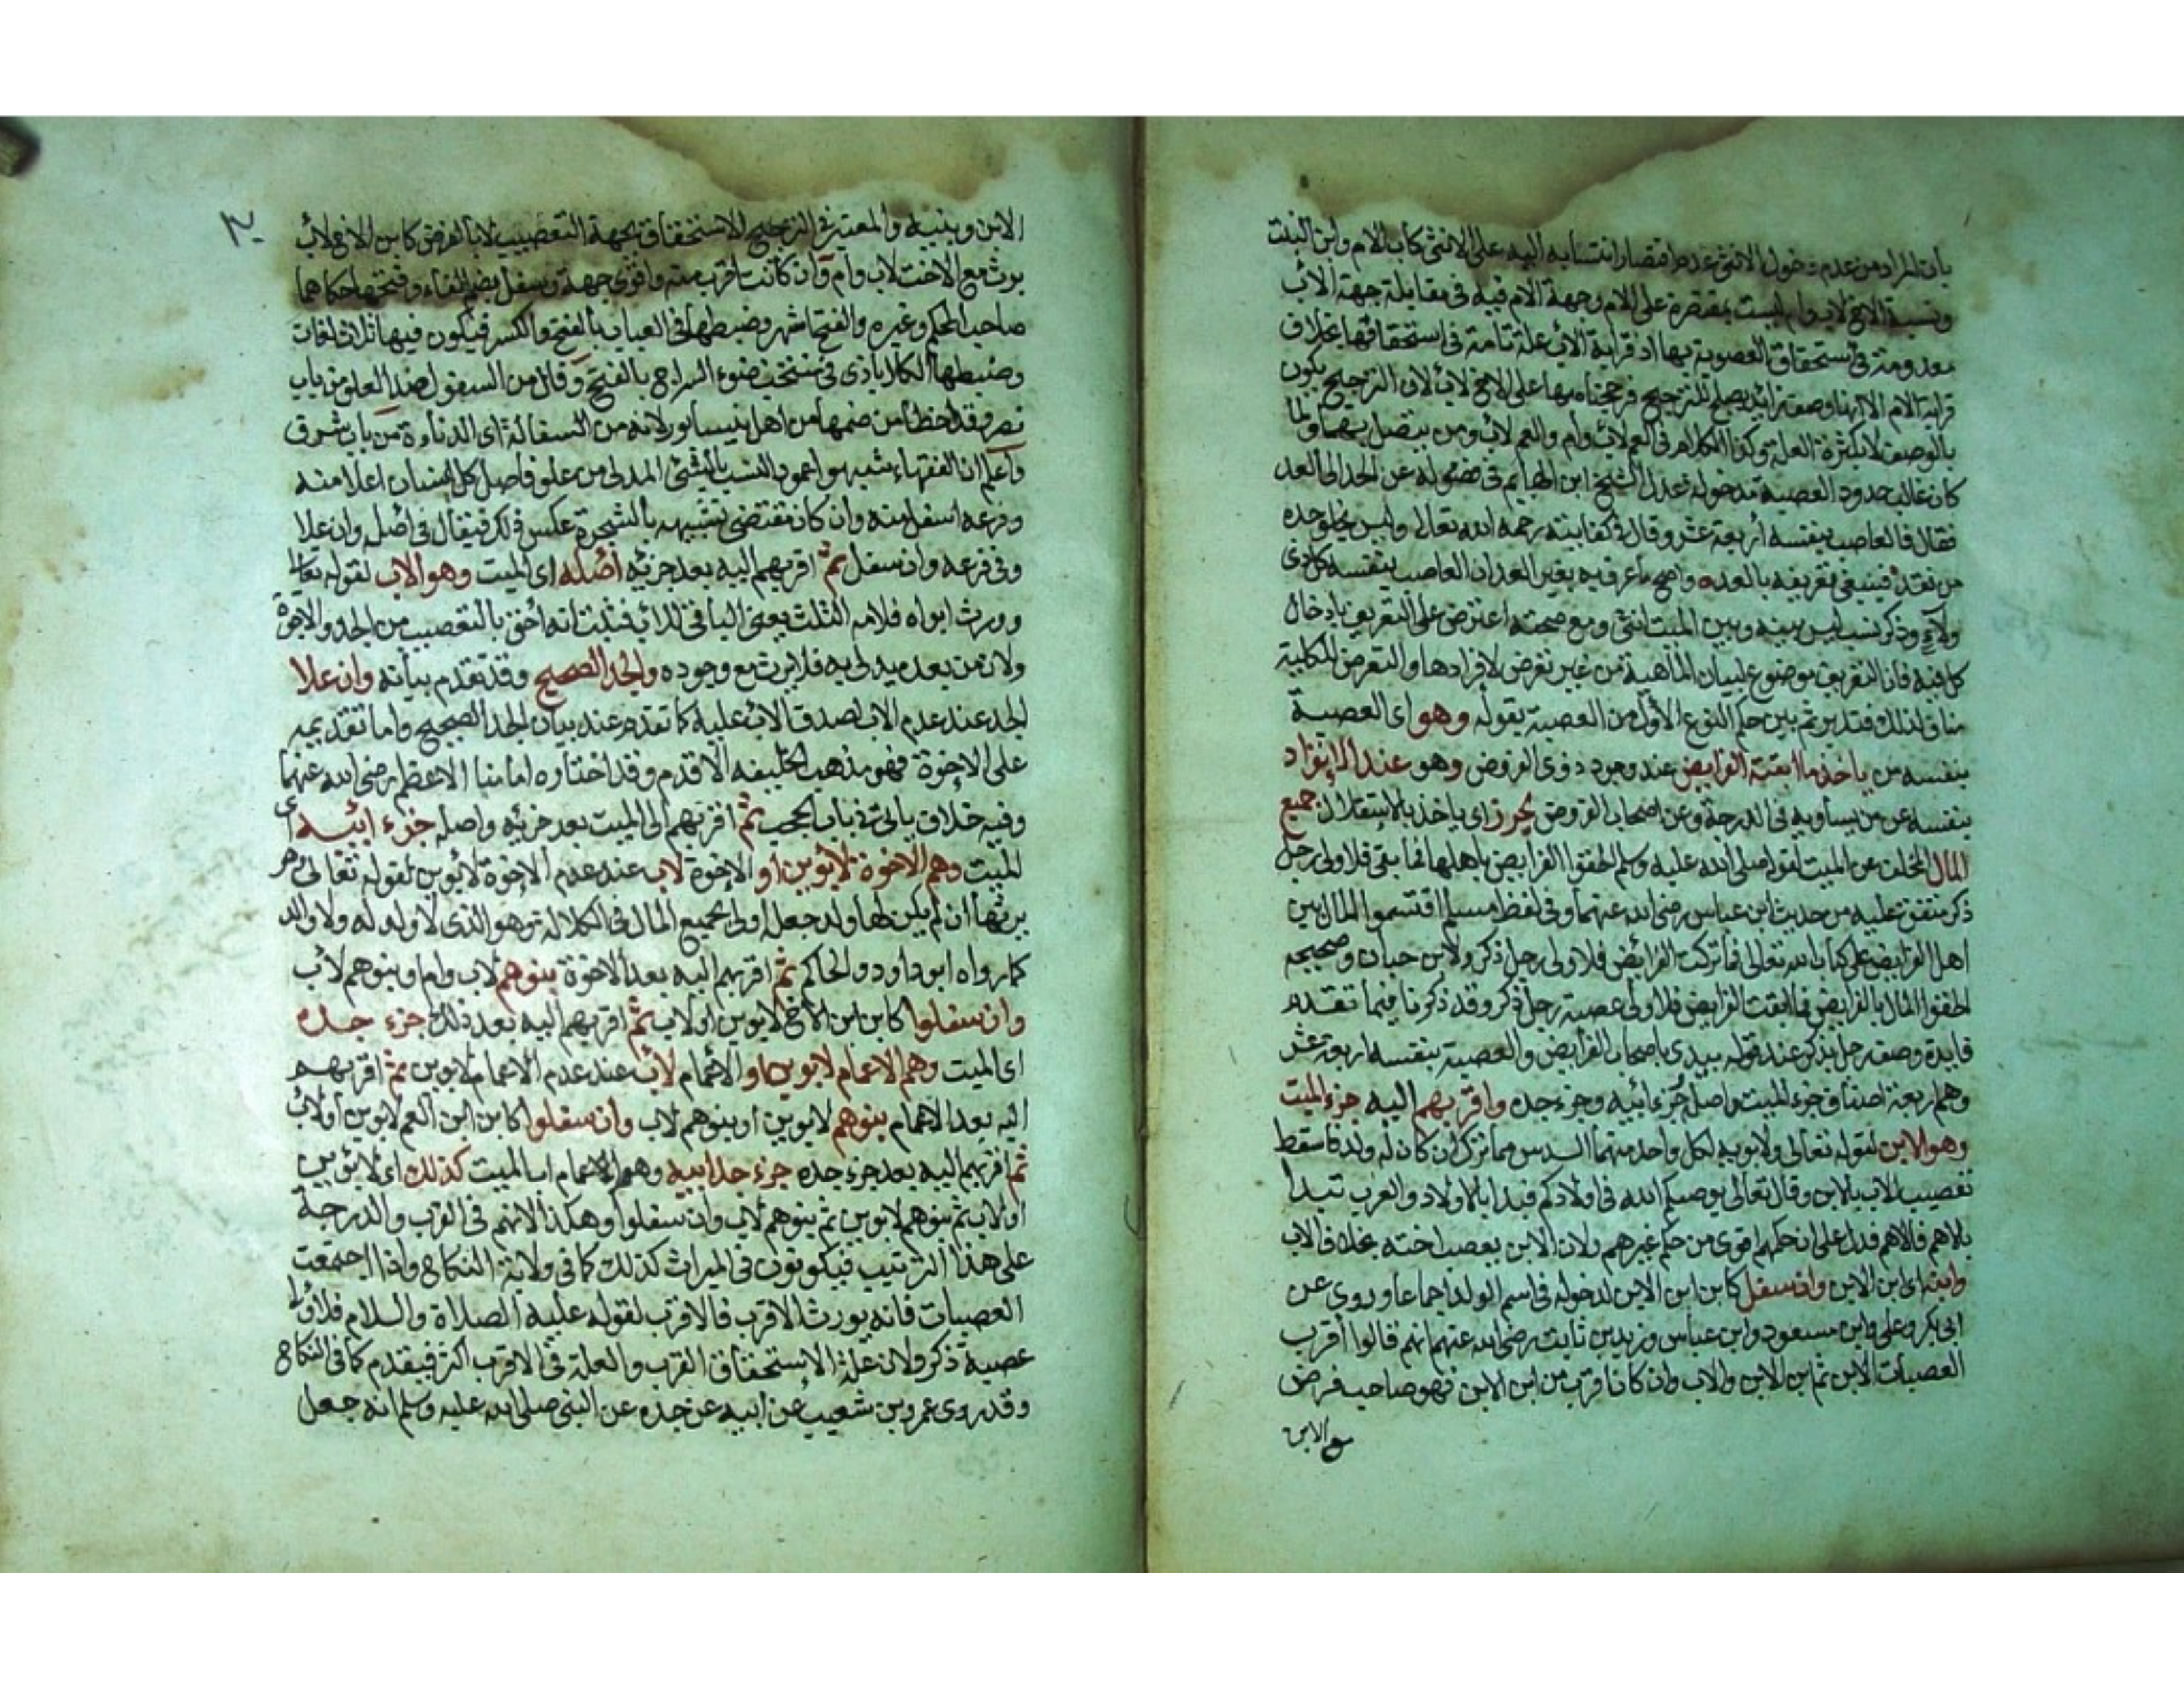 بان المراد من عدم دخول الانثى عدم اقتصار انتسابه اليه على الانثى كاب الام وابن البنت
ونسبة الاخ لاب وام ليست بمقتصرة على الام وجهة الام فيه فى مقابلة جهة الأب
معدومة فى استحقاق العصوبة بها اذ قرابة الأب علة تامة فى استحقاقها بخلاف
قرابة الام الا انها وصف زائد يصلح للترجيح فرجحناه بها على الاخ لاب لان الترجيح يكون
بالوصف لا بكثرة العلة وكذا الكلام فى العم لاب وام والعم لاب ومن يتصل بهما ولما
كان غالب حدود العصبة مدخولة عدل الشيخ ابن الهايم فى فصوله عن الحد الى العد
فقال فالعاصب بنفسه أربعة عشر وقال فى كفايته رحمه الله تعالى وليس يخلو حده
من نقد فينبغى تعريفه بالعد واصح ما عرف به بغير العد ان العاصب بنفسه كل ذى
ولاءٍ وذكر نسب ليس بينه وبين الميت انثى ومع صحته اعترض على التعريف بادخال
كل فيه فان التعريف موضوع لبيان الماهية من غير تعرض لافرادها والتعرض للكلية
مناف لذلك فتدبر ثم بين حكم النوع الأول من العصبة بقوله وهو اى العصبة
بنفسه من ياخذ ما ابقته الفرايض عند وجود ذوى الفروض وهو عند الانفراد
بنفسه عن من يساويه فى الدرجة وعن اصحاب الفروض يحرز اى ياخذ بالاستقلال جميع
المال المخلف عن الميت لقوله صلى الله عليه وسلم الحقوا الفرايض باهلها فما بقى فلاولى رجل
ذكر متفق عليه من حديث ابن عباس رضى الله عنهما وفى لفظ مسلم اقسموا المال بين
اهل الفرايض على كتاب الله تعالى فما تركت الفرائض فلاولى رجل ذكر ولابن حبان فى صحيحه
الحقوا المال بالفرايض فما ابقت الفرايض فلاولى عصبة رجل ذكر وقد ذكرنا فيما تقدم
فايدة وصف رجل بذكر عند قوله يبدى باصحاب الفرايض والعصبة بنفسه اربعة عشر
وهم اربعة اصناف جزء الميت واصله جُزء ابيه وجزء جده واقربهم اليه جزء الميت
وهو الابن لقوله تعالى ولابويه لكل واحد منهما السدس مما ترك ان كان له ولد فاسقط
تعصيب الاب بالابن وقال تعالى يوصيكم الله فى اولادكم فبدا بالاولاد والعرب تبدا
بالاهم فالاهم فدل على ان حكمهم اقوى من حكم غيرهم ولان الابن يعصب اخته بخلاف الاب
وابنه اى ابن الابن وان سفل كابن ابن الابن لدخوله فى اسم الولد اجماعا وروى عن
ابى بكر وعلى وابن مسعود وابن عباس وزيد بن ثابت رضى الله عنهم انهم قالوا أقرب
العصبات الابن ثم ابن الابن والاب وان كان اقرب من ابن الابن فهو صاحب فرض
مع الابن
٣٠
الابن وبنيه والمعتبر فى الترجيح الاستحقاق بجهة التعصيب لا بالفرض كابن الاخ لاب
يرث مع الاخت لاب وام وان كانت اقرب منه واقوى جهة وسفل بضم الفاء وفتحها حكاهما
صاحب المحكم وغيره والفتح اشهر وضبطها فى العباب بالفتح والكسر فيكون فيها ثلاث لغات
وضبطها الكلاباذى فى منتخب ضوء السراج بالفتح وقال من السفول ضد العلو من باب
نصر وقد اخطأ من ضمها من اهل نيسابور لانه من السفالة اى الدناءة من باب شرف
واعلم ان الفقهاء شبهوا عمود النسب بالشئ المدلى من علو فاصل كل انسان اعلا منه
وفرعه اسفل منه وان كان مقتضى تشبيهه بالشجرة عكس ذلك فيقال فى اصله وان علا
وفى فرعه وان سفل ثم اقربهم اليه بعد جزئه أصله اى الميت وهو الاب لقوله تعالى
وورث ابواه فلامه الثلث يعنى الباقى للاب فثبت انه أحق بالتعصيب من الجد والاخوة
ولان من بعد ميدلى به فلا يرث مع وجوده والجد الصحيح وقد تقدم بيانه وان علا
الجد عند عدم الاب لصدق الاب عليه كما تقدم عند بيان الجد الصحيح واما تقديمه
على الاخوة فهو مذهب الخليفه الاقدم وقد اختاره امامنا الاعظم رضى الله عنهما
وفيه خلاف ياتى فى باب الحجب ثم اقربهم الى الميت بعد جزئه واصله جزء ابيه اى
الميت وهم الاخوة لابوين او الاخوة لاب عند عدم الاخوة لابوين لقوله تعالى وهو
يرثها ان لم يكن لها ولد جعله اولى بجميع المال فى الكلالة وهو الذى لا ولد له ولا والد
كما رواه ابو داود والحاكم ثم اقربهم اليه بعد الاخوة بنوهم لاب وام او بنوهم لأب
وان سفلوا كابن ابن الأخ لابوين او لاب ثم اقربهم اليه بعد ذلك جزء جده
اى الميت وهم الاعمام لابوين او الأعمام لأب عند عدم الاعمام لابوين ثم اقربهم
اليه بعد الاعمام بنوهم لابوين او بنوهم لاب وان سفلوا كابن ابن العم لابوين او لاب
ثم اقربهم اليه بعد جزء جده جزء جد ابيه وهو الاعمام اب الميت كذلك اى لابوين
او لاب ثم بنوهم لابوين ثم بنوهم لاب وان سفلوا وهكذا لانهم فى القرب والدرجة
على هذا الترتيب فيكونون فى الميراث كذلك كما فى ولاية النكاح واذا اجتمعت
العصبات فانه يورث الاقرب فالاقرب لقوله عليه الصلاة والسلام فلاولى
عصبة ذكر ولان علة الاستحقاق القرب والعلة فى الاقرب اكثر فيقدم كما فى النكاح
وقد روى عمرو بن شعيب عن ابيه عن جده عن النبى صلى الله عليه وسلم انه جعل